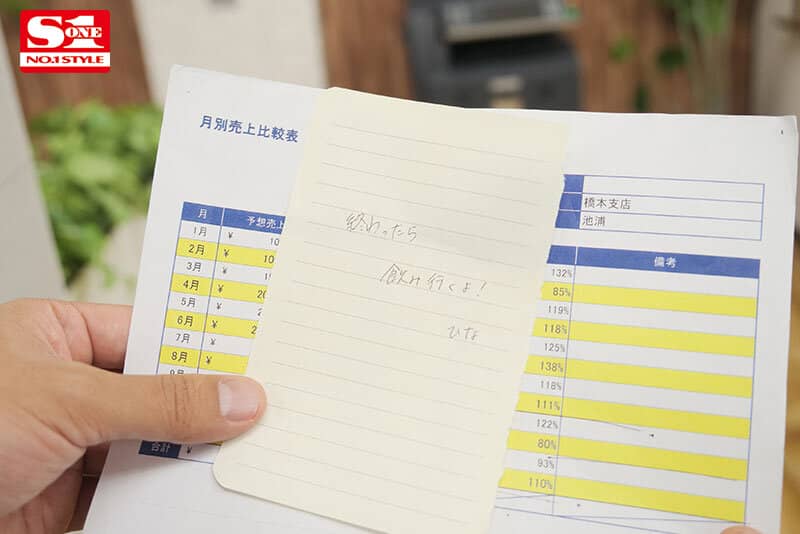 S1 ONE
NO.1 STYLE
月別売上比較表
橋本支店
池浦
月 予想売上
備考
1月 ¥ 10
2月 ¥ 10
3月 ¥ 15
4月 ¥ 20
5月 ¥
6月 ¥ 2
7月 ¥
8月 ¥
合計 ¥
終わったら
飲み行くよ!
ひな
132%
85%
119%
118%
125%
138%
118%
111%
122%
80%
93%
110%